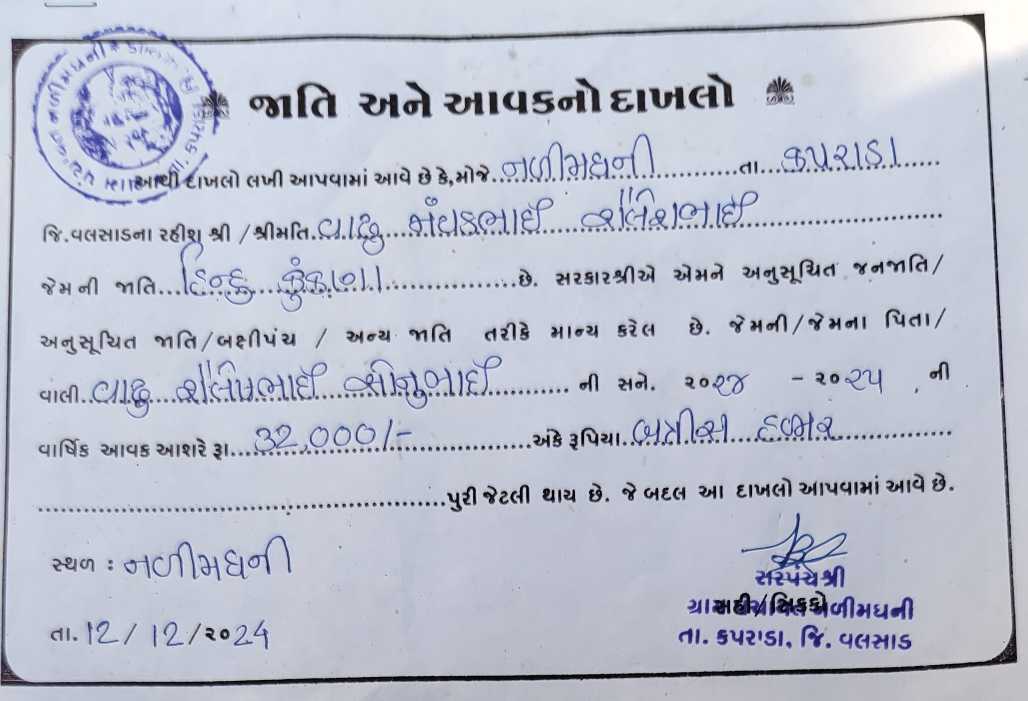 જાતિ અને આવકનો દાખલો
આથી દાખલો લખી આપવામાં આવે છે કે, મોજે. નળીમધની તા. કપરાડા
જિ. વલસાડના રહીશ શ્રી / શ્રીમતિ. વાઢુ મંયકભાઈ શૈલેશભાઈ
જેમની જાતિ... હિન્દુ કુંકણા છે. સરકારશ્રીએ એમને અનુસૂચિત જનજાતિ/
અનુસૂચિત જાતિ/બક્ષીપંચ / અન્ય જાતિ તરીકે માન્ય કરેલ છે. જેમની/જેમના પિતા/
વાલી. વાઢુ શૈલેષભાઈ સોનુભાઈ ની સને. ૨૦૨૪ - ૨૦૨૫ ની
વાર્ષિક આવક આશરે રૂા... 32,000/- અંકે રૂપિયા.. બત્રીસ હજાર
પુરી જેટલી થાય છે. જે બદલ આ દાખલો આપવામાં આવે છે.
સ્થળ : નળીમધની
સરપંચશ્રી
સહી/સિક્કો
નળીમધની
તા. 12/12/૨૦24
તા. કપરાડા, જિ. વલસાડ